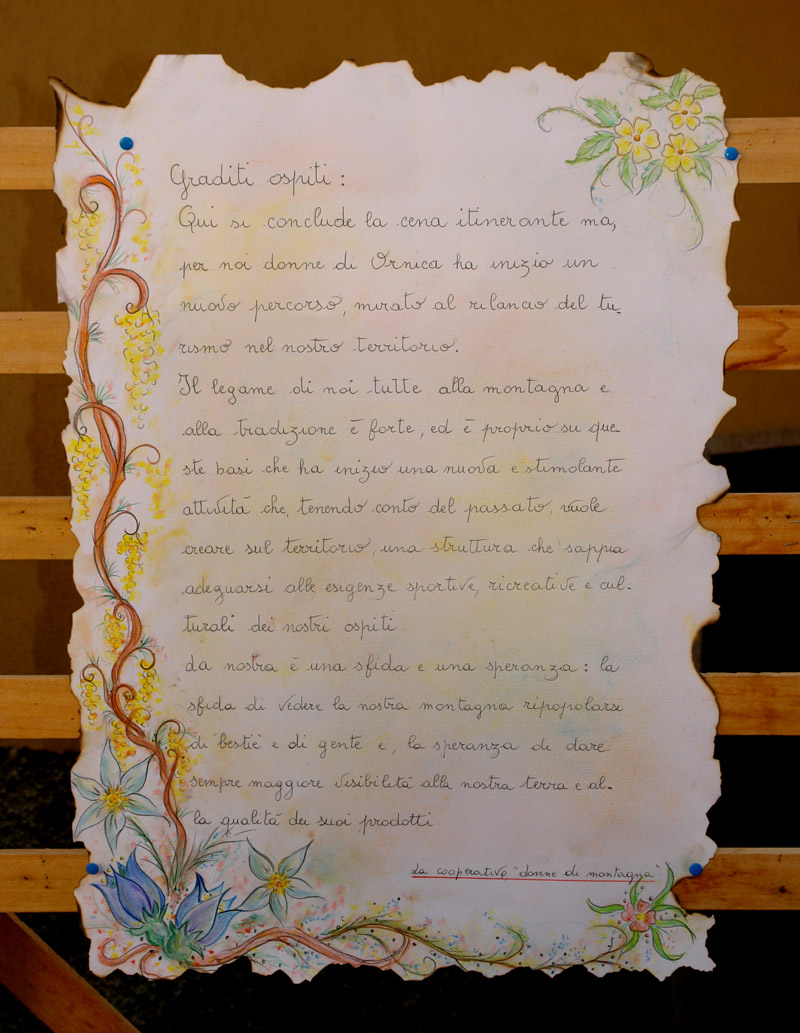 Graditi ospiti :
Qui si conclude la cena itinerante ma,
per noi donne di Ornica ha inizio un
nuovo percorso, mirato al rilancio del tu-
rismo nel nostro territorio.
Il legame di noi tutte alla montagna e
alla tradizione è forte, ed è proprio su que-
ste basi che ha inizio una nuova e stimolante
attività che, tenendo conto del passato, vuole
creare sul territorio, una struttura che sappia
adeguarsi alle esigenze sportive, ricreative e cul-
turali dei nostri ospiti.
La nostra è una sfida e una speranza : la
sfida di vedere la nostra montagna ripopolarsi
di "bestie" e di gente e, la speranza di dare
sempre maggiore visibilità alla nostra terra e al-
la qualità dei suoi prodotti
La cooperativa "donne di montagna"